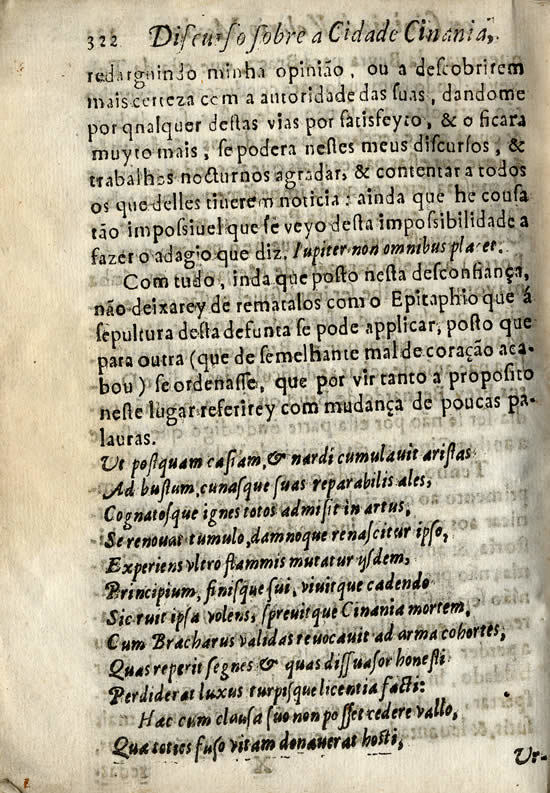 322 Discurso sobre a Cidade Cinania,
redarguindo minha opinião, ou a descobrirem
mais certeza com a autoridade das suas, dandome
por qualquer destas vias por satisfeyto, & o ficara
muyto mais, se podera nestes meus discursos, &
trabalhos nocturnos agradar, & contentar a todos
os que delles tiuerem noticia: ainda que he cousa
tão impossiuel que se veyo desta impossibilidade a
fazer o adagio que diz. Iupiter non omnibus placet.
Com tudo, inda que posto nesta desconfiança,
não deixarey de rematalos com o Epitaphio que á
sepultura desta defunta se pode applicar, posto que
para outra (que de semelhante mal de coração aca-
bou) se ordenasse, que por vir tanto a proposito
neste lugar referirey com mudança de poucas pa-
lauras.
Vt postquam casiam, & nardi cumulauit aristas
Ad bustum, cunasque suas reparabilis ales,
Cognatosque ignes totos admisit in artus,
Se renouat tumulo, damnoque renascitur ipso,
Experiens vltro flammis mutatur ijsdem,
Principium, finisque sui, viuitque cadendo
Sic ruit ipsa volens, spreuitque Cinania mortem,
Cum Bracharus validas reuocauit ad arma cohortes,
Quas reperit segnes & quas dissuasor honesti
Perdiderat luxus turpisque licentia facti:
Hac cum clausa suo non posset cedere vallo,
Qua toties fuso vitam donauerat hosti,
Vr-